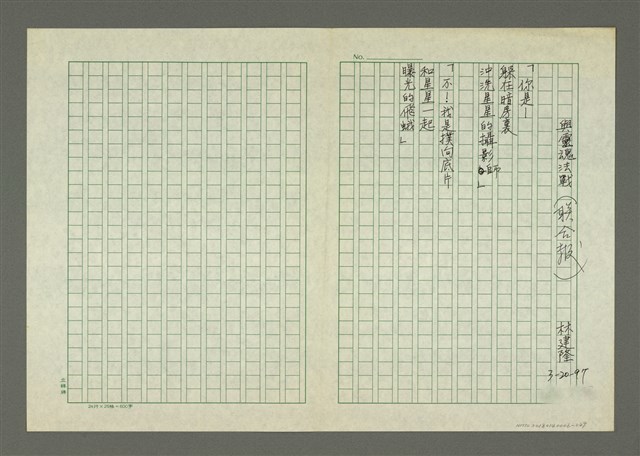 與靈魂法戰（聯合報）　林建隆
3-20-97
「你是—
躲在暗房裏
沖洗星星的攝影師」
「不！我是撲向底片
和星星一起
曝光的飛蛾」
NO.